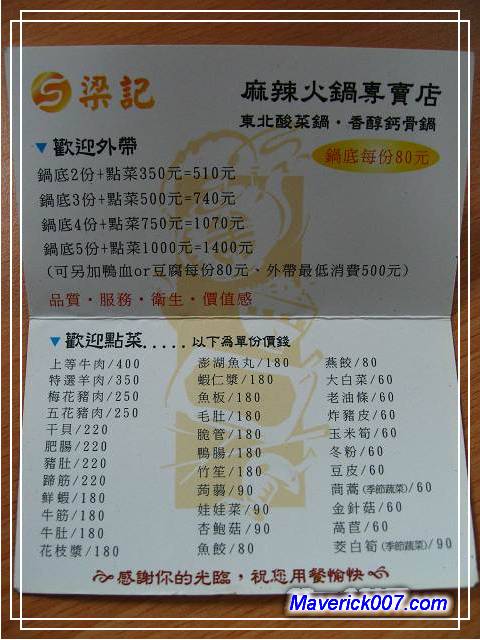 梁記
麻辣火鍋專賣店
東北酸菜鍋·香醇鈣骨鍋
▼歡迎外帶
鍋底每份80元
鍋底2份+點菜350元=510元
鍋底3份+點菜500元=740元
鍋底4份+點菜750元=1070元
鍋底5份+點菜1000元=1400元
(可另加鴨血or豆腐每份80元、外帶最低消費500元)
品質·服務·衛生·價值感
▼歡迎點菜.....以下為單份價錢
上等牛肉/400
特選羊肉/350
梅花豬肉/250
五花豬肉/250
干貝/220
肥腸/220
豬肚/220
蹄筋/220
鮮蝦/180
牛筋/180
牛肚/180
花枝漿/180
澎湖魚丸/180
蝦仁漿/180
魚板/180
毛肚/180
脆管/180
鴨腸/180
竹笙/180
蒟蒻/90
娃娃菜/90
杏鮑菇/90
魚餃/80
燕餃/80
大白菜/60
老油條/60
炸豬皮/60
玉米筍/60
冬粉/60
豆皮/60
茼蒿(季節蔬菜)/60
金針菇/60
萵苣/60
茭白筍(季節蔬菜)/90
感謝你的光臨,祝您用餐愉快
Maverick007.com